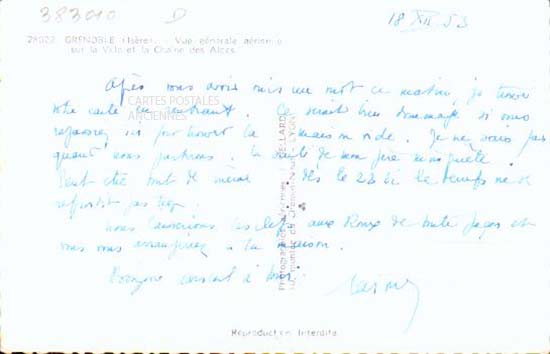 383010 D
18 XII 53
28022 GRENOBLE (Isère) - Vue générale aérienne
sur la Ville et la Chaîne des Alpes
Après vous avoir mis un mot ce matin, je trouve
votre carte en rentrant. Ce serait bien dommage si vous
CARTES POSTALES
ANCIENNES
ici pour trouver la maison vide. Je ne vois pas
quand nous partirons. la santé de mon père m'inquiète.
Peut être tout de même dès le 23 si le temps ne se
refroidit pas trop.
Nous laisserions les clefs aux Roux de toute façon et
vous vous arrangeriez à la maison.
à tous.
Photographies
Reproduction Interdite